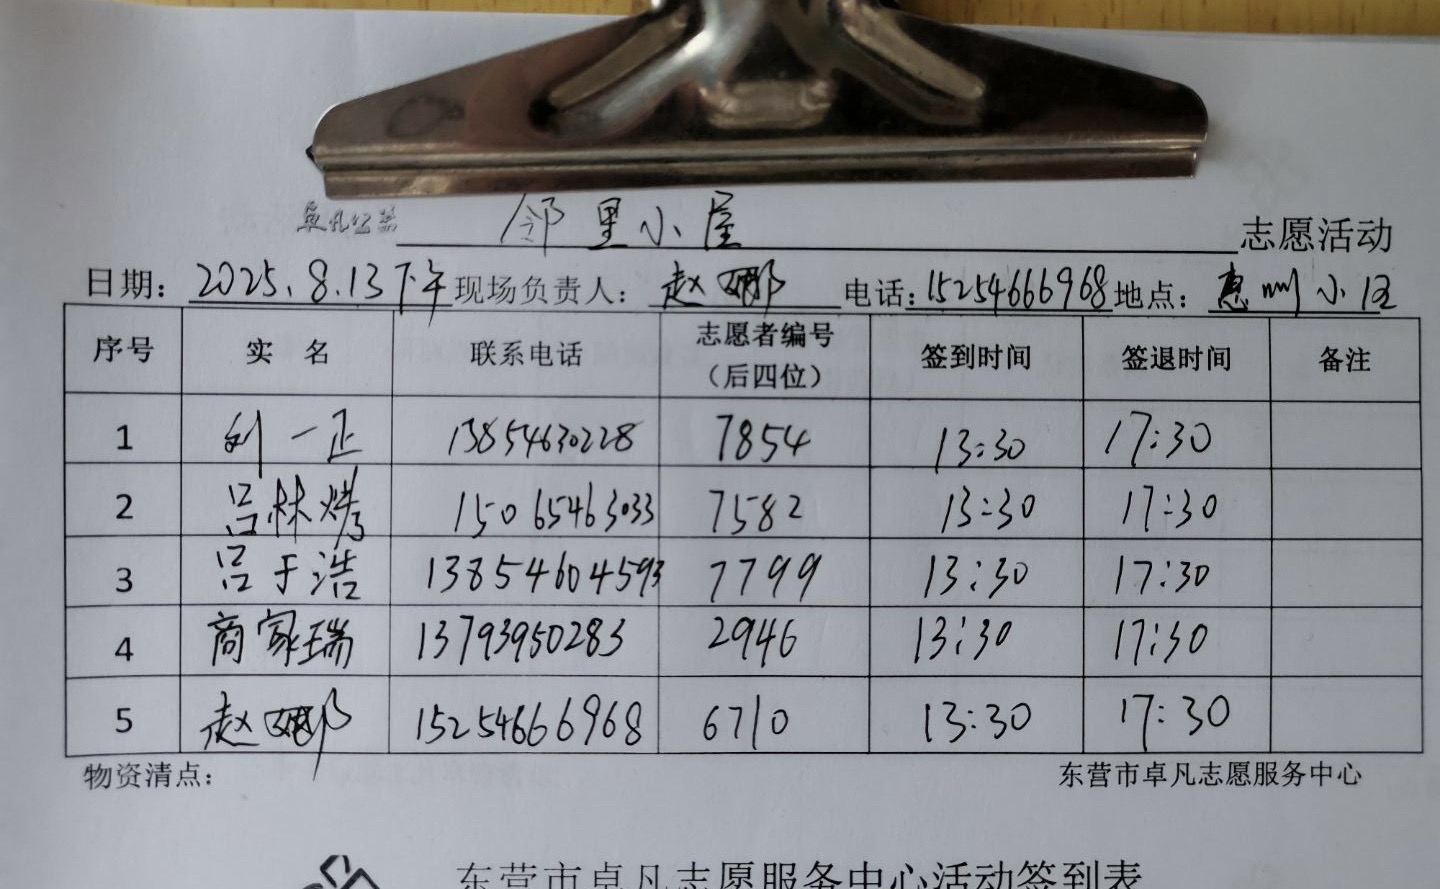 卓凡公益 邻里小屋 志愿活动
日期：2025.8.13下午 现场负责人：赵娜 电话：15254666968 地点：惠州小区
序号 实 名 联系电话 志愿者编号（后四位） 签到时间 签退时间 备注
1 刘一正 13854630228 7854 13:30 17:30
2 吕林烤 15065463033 7582 13:30 17:30
3 吕于浩 13854604593 7799 13:30 17:30
4 商家瑞 13793950283 2946 13:30 17:30
5 赵娜 15254666968 6710 13:30 17:30
物资清点： 东营市卓凡志愿服务中心
东营市卓凡志愿服务中心活动签到表